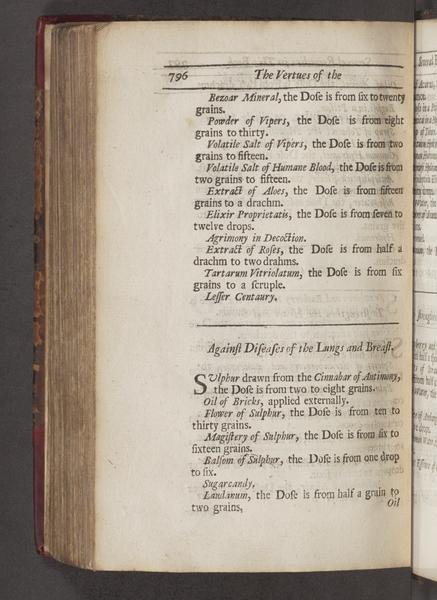 796 The Vertues of the
Bezoar Mineral, the Doſe is from ſix to twenty
grains.
Powder of Vipers, the Doſe is from eight
grains to thirty.
Volatile Salt of Vipers, the Doſe is from two
grains to fifteen.
Volatile Salt of Humane Blood, the Doſe is from
two grains to fifteen.
Extract of Aloes, the Doſe is from fifteen
grains to a drachm.
Elixir Proprietatis, the Doſe is from ſeven to
twelve drops.
Agrimony in Decoction.
Extract of Roſes, the Doſe is from half a
drachm to two drahms.
Tartarum Vitriolatum, the Doſe is from ſix
grains to a ſcruple.
Leſſer Centaury.
Againſt Diſeaſes of the Lungs and Breaſt.
SUlphur drawn from the Cinnabar of Antimony,
the Doſe is from two to eight grains.
Oil of Bricks, applied externally.
Flower of Sulphur, the Doſe is from ten to
thirty grains.
Magiſtery of Sulphur, the Doſe is from ſix to
ſixteen grains.
Balſom of Sulphur, the Doſe is from one drop
to ſix.
Sugarcandy.
Laudanum, the Doſe is from half a grain to
two grains,
Oil